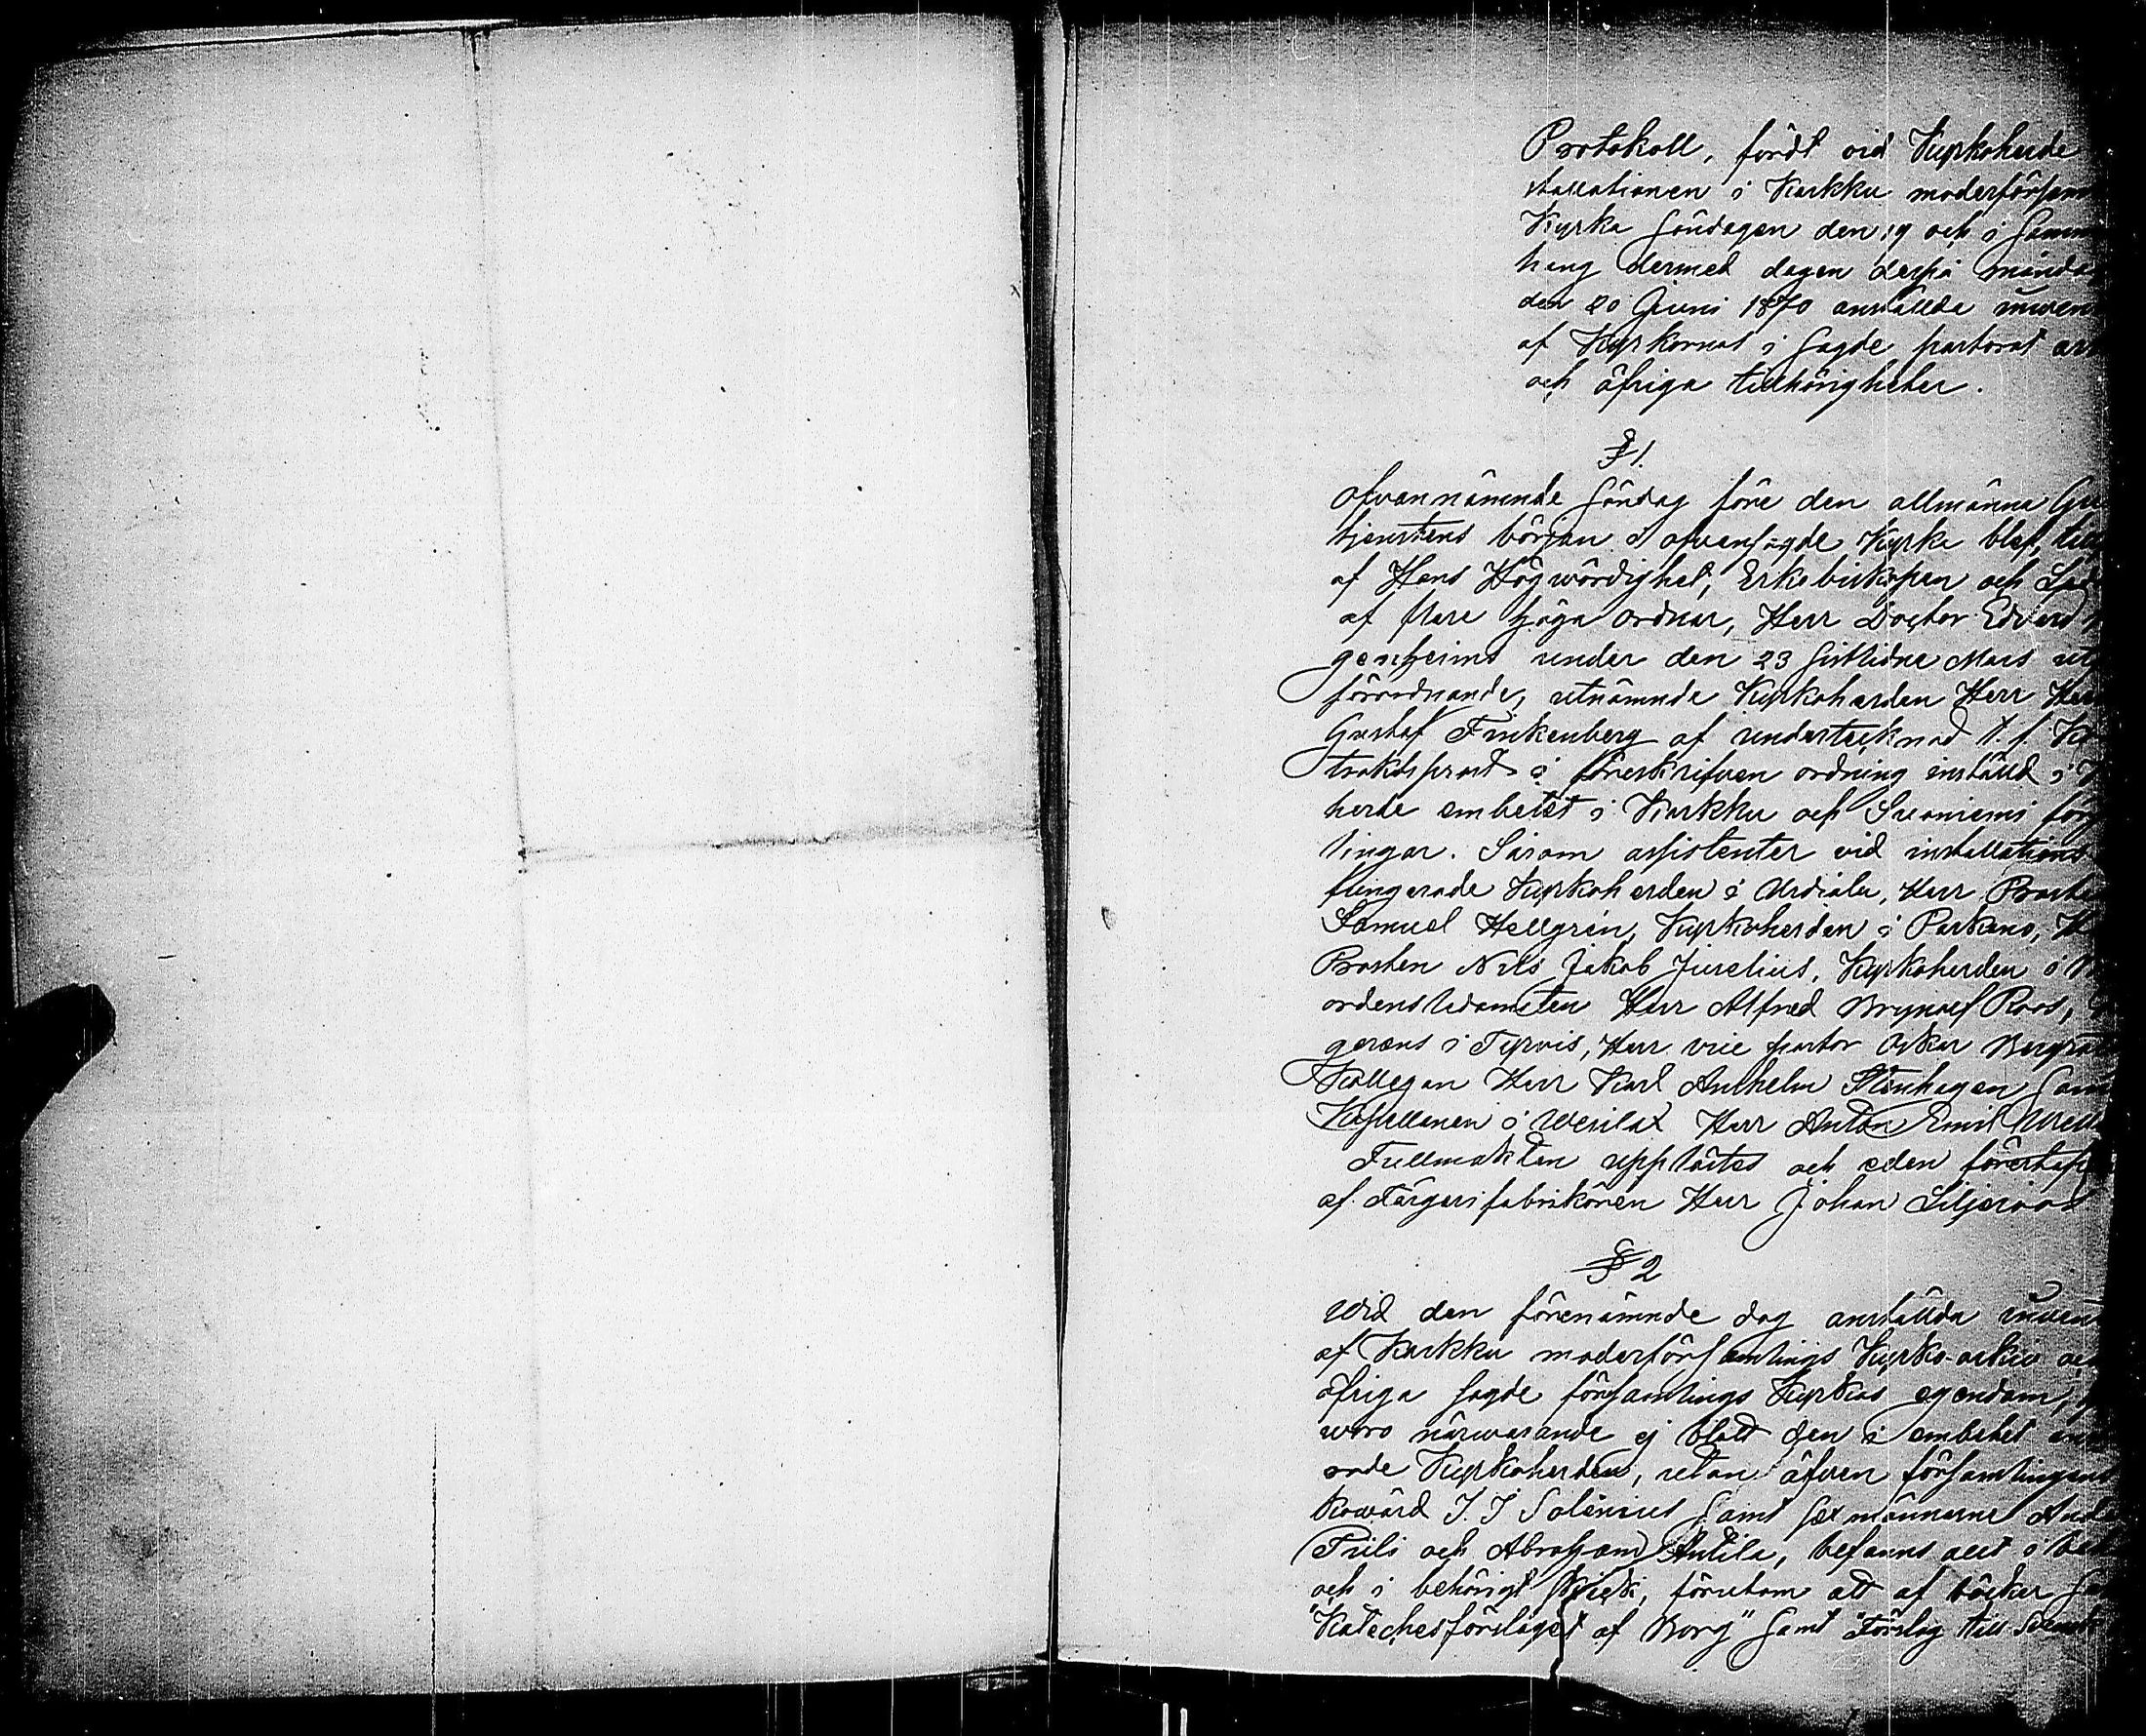 Protokoll, fördt vid Kyrkoherde
stallationen i Karkku moderförsam
Kyrka Söndagen den 19 och i Samm
hang dermed dagen derpå månda
den 20 Juni 1870 anställda inven
af Kyrkornas i Sagde pastorat ar
och öfriga tillhörigheter.
§ 1.
Ofvannämnde Söndag före den allmänna Gu
tjenstens början i ofvansagde Kyrka blef, till
af Hans Högwördighet, Erkebiskopen och
af flere höga ordnar, Herr Doctor Edvard
genheims under den 23 Sistlidne Mars ut
förordnande, utnämnde Kyrkoherden Herr
Gustaf Finkenberg af undertecknad t. f. Ko
traktsprost i föreskrifven ordning inställd i
herde embetet i Karkku och Suoniemi för
lingar. Såsom assistenter vid installations
fungerade Kyrkoherden i Urdiala, Herr Prosten
Samuel Hellgrén, Kyrkoherden i Parkano, H
Prosten Nils Jakob Jurelius, Kyrkoherden i
ordensledamoten Herr Alfred Brynolf Roos,
gerens i Tyrvis, Herr vice pastor Oskar Bergro
Kollegan Herr Karl Anthelm Stenhagen Sam
Kapellanen i Wesilax Herr Anton Emil
Fullmakten upplästes och eden förestaf
af Färgerifabrikören Herr Johan Liljeroos
§ 2
Wid den förenämnde dag anställda inven
af Karkku moderförsamlings Kyrko-arkiv oc
öfriga Sagde församlings Kyrkas egendom,
woro närwarande ej blott den i embetet
ade Kyrkoherden, utan äfven församlingens
kowärd J. J Solenius Samt Sexmännerne And
Prili och Abraham Antila, befanns allt i be
och i behörigt Skick, förutom att af böcker Sa
"Katechesförslaget af Borg" Samt "Förslag till Svensk